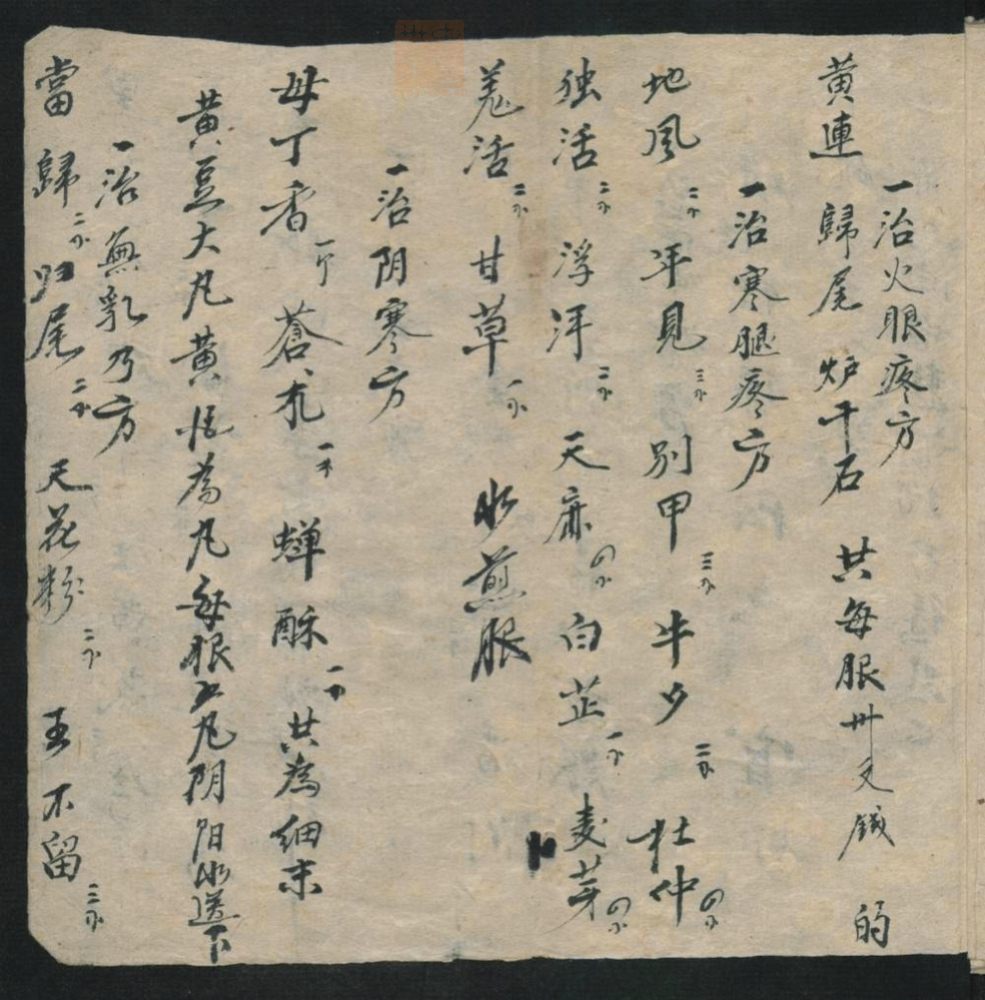 一治火眼疼方
黄連 歸尾 炉干石 共每服卅文錢 的
一治寒腿疼方
地風 二分 年見 三分 別甲 三分 牛夕 三分 杜仲
独活 二分 浮 二分 天麻 白芷 一分 麦芽
羗活 二分 甘草 一分 水煎服
一治阴寒方
母丁香 蒼 蟬酥 一分 共為細末
黃豆大凡黃 為凡每服 凡阴阳水送下
一治無乳乃方
當歸 二分 归尾 二分 天花粉 二分 王不留 三分